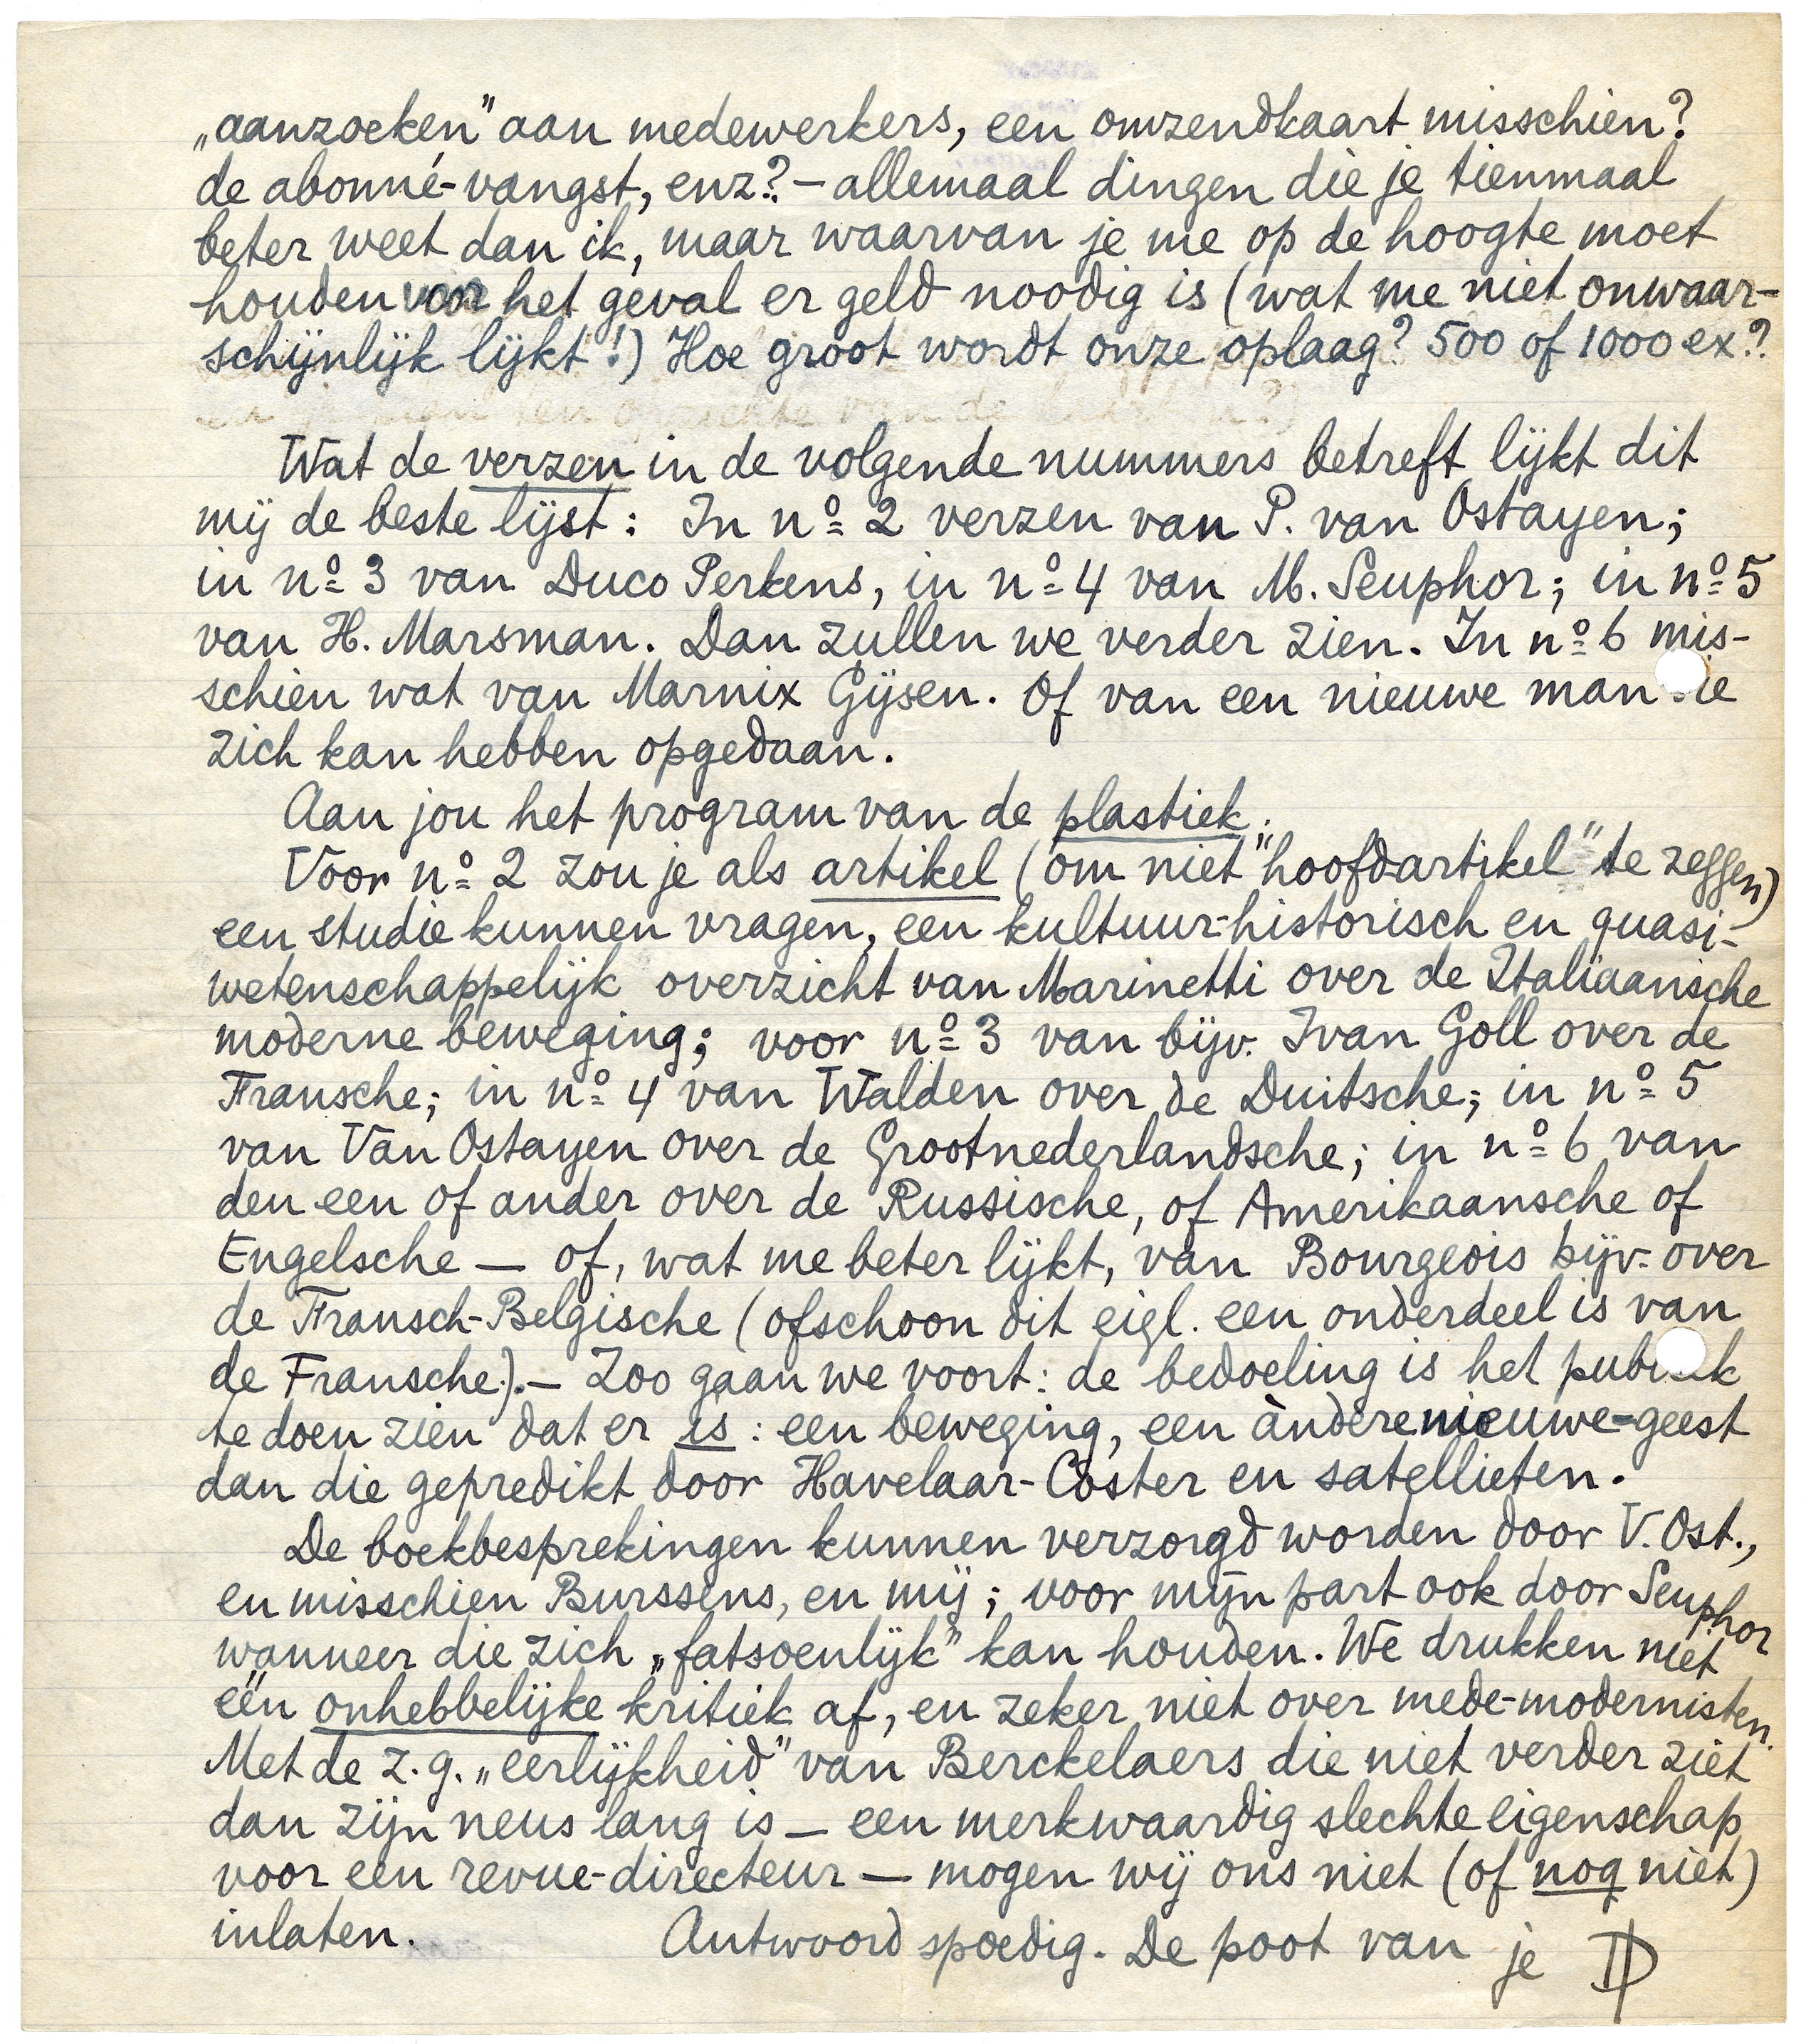 „aanzoeken” aan medewerkers, een omzendkaart misschien?
de abonné-vangst, enz? — allemaal dingen die je tienmaal
beter weet dan ik, maar waarvan je me op de hoogte moet
houden voor het geval er geld noodig is (wat me niet onwaar-
schijnlijk lijkt!) Hoe groot wordt onze oplaag? 500 of 1000 ex?
Wat de verzen in de volgende nummers betreft lijkt dit
mij de beste lijst: In nº 2 verzen van P. van Ostayen;
in nº 3 van Duco Perkens, in nº 4 van M. Seuphor; in nº 5
van H. Marsman. Dan zullen we verder zien. In nº 6 mis-
schien wat van Marnix Gijsen. Of van een nieuwe man die
zich kan hebben opgedaan.
Aan jou het program van de plastiek.
Voor nº 2 zou je als artikel (om niet "hoofdartikel" te zeggen)
een studie kunnen vragen, een kultuur-historisch en quasi-
wetenschappelijk overzicht van Marinetti over de Italiaansche
moderne beweging; voor nº 3 van bijv. Ivan Goll over de
Fransche; in nº 4 van Walden over de Duitsche; in nº 5
van Van Ostayen over de Grootnederlandsche; in nº 6 van
den een of ander over de Russische, of Amerikaansche of
Engelsche — of, wat me beter lijkt, van Bourgeois bijv. over
de Fransch-Belgische (ofschoon dit eigl. een onderdeel is van
de Fransche). — Zoo gaan we voort: de bedoeling is het publiek
te doen zien dat er is: een beweging, een àndere nieuwe-geest
dan die gepredikt door Havelaar-Coster en satellieten.
De boekbesprekingen kunnen verzorgd worden door V. Ost.,
en misschien Burssens, en mij; voor mijn part ook door Seuphor
wanneer die zich „fatsoenlijk” kan houden. We drukken niet
één onhebbelijke kritiek af, en zeker niet over mede-modernisten.
Met de z.g. „eerlijkheid” van Berckelaers die niet verder ziet
dan zijn neus lang is — een merkwaardig slechte eigenschap
voor een revue-directeur — mogen wij ons niet (of nog niet)
inlaten. Antwoord spoedig. De poot van je DP